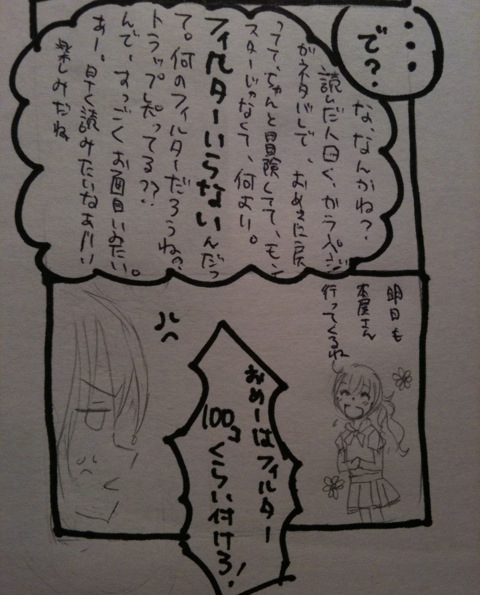 ・・・
で?
な、なんかね?
読んだ人曰く、カラペジ
がネタバレで、おめさに戻
ってて、ちゃんと冒険してて、モン
スターじゃなくて、何より。
フィルターいらないんだっ
て。何のフィルターだろうね?
トラップ知ってる??
んで、すっごくお面白いみたい。
あー、早く読みたいなぁ!!
楽しみだね
明日も
本屋さん
行ってくるねー
おめーはフィルター
100コくらい付けろ!